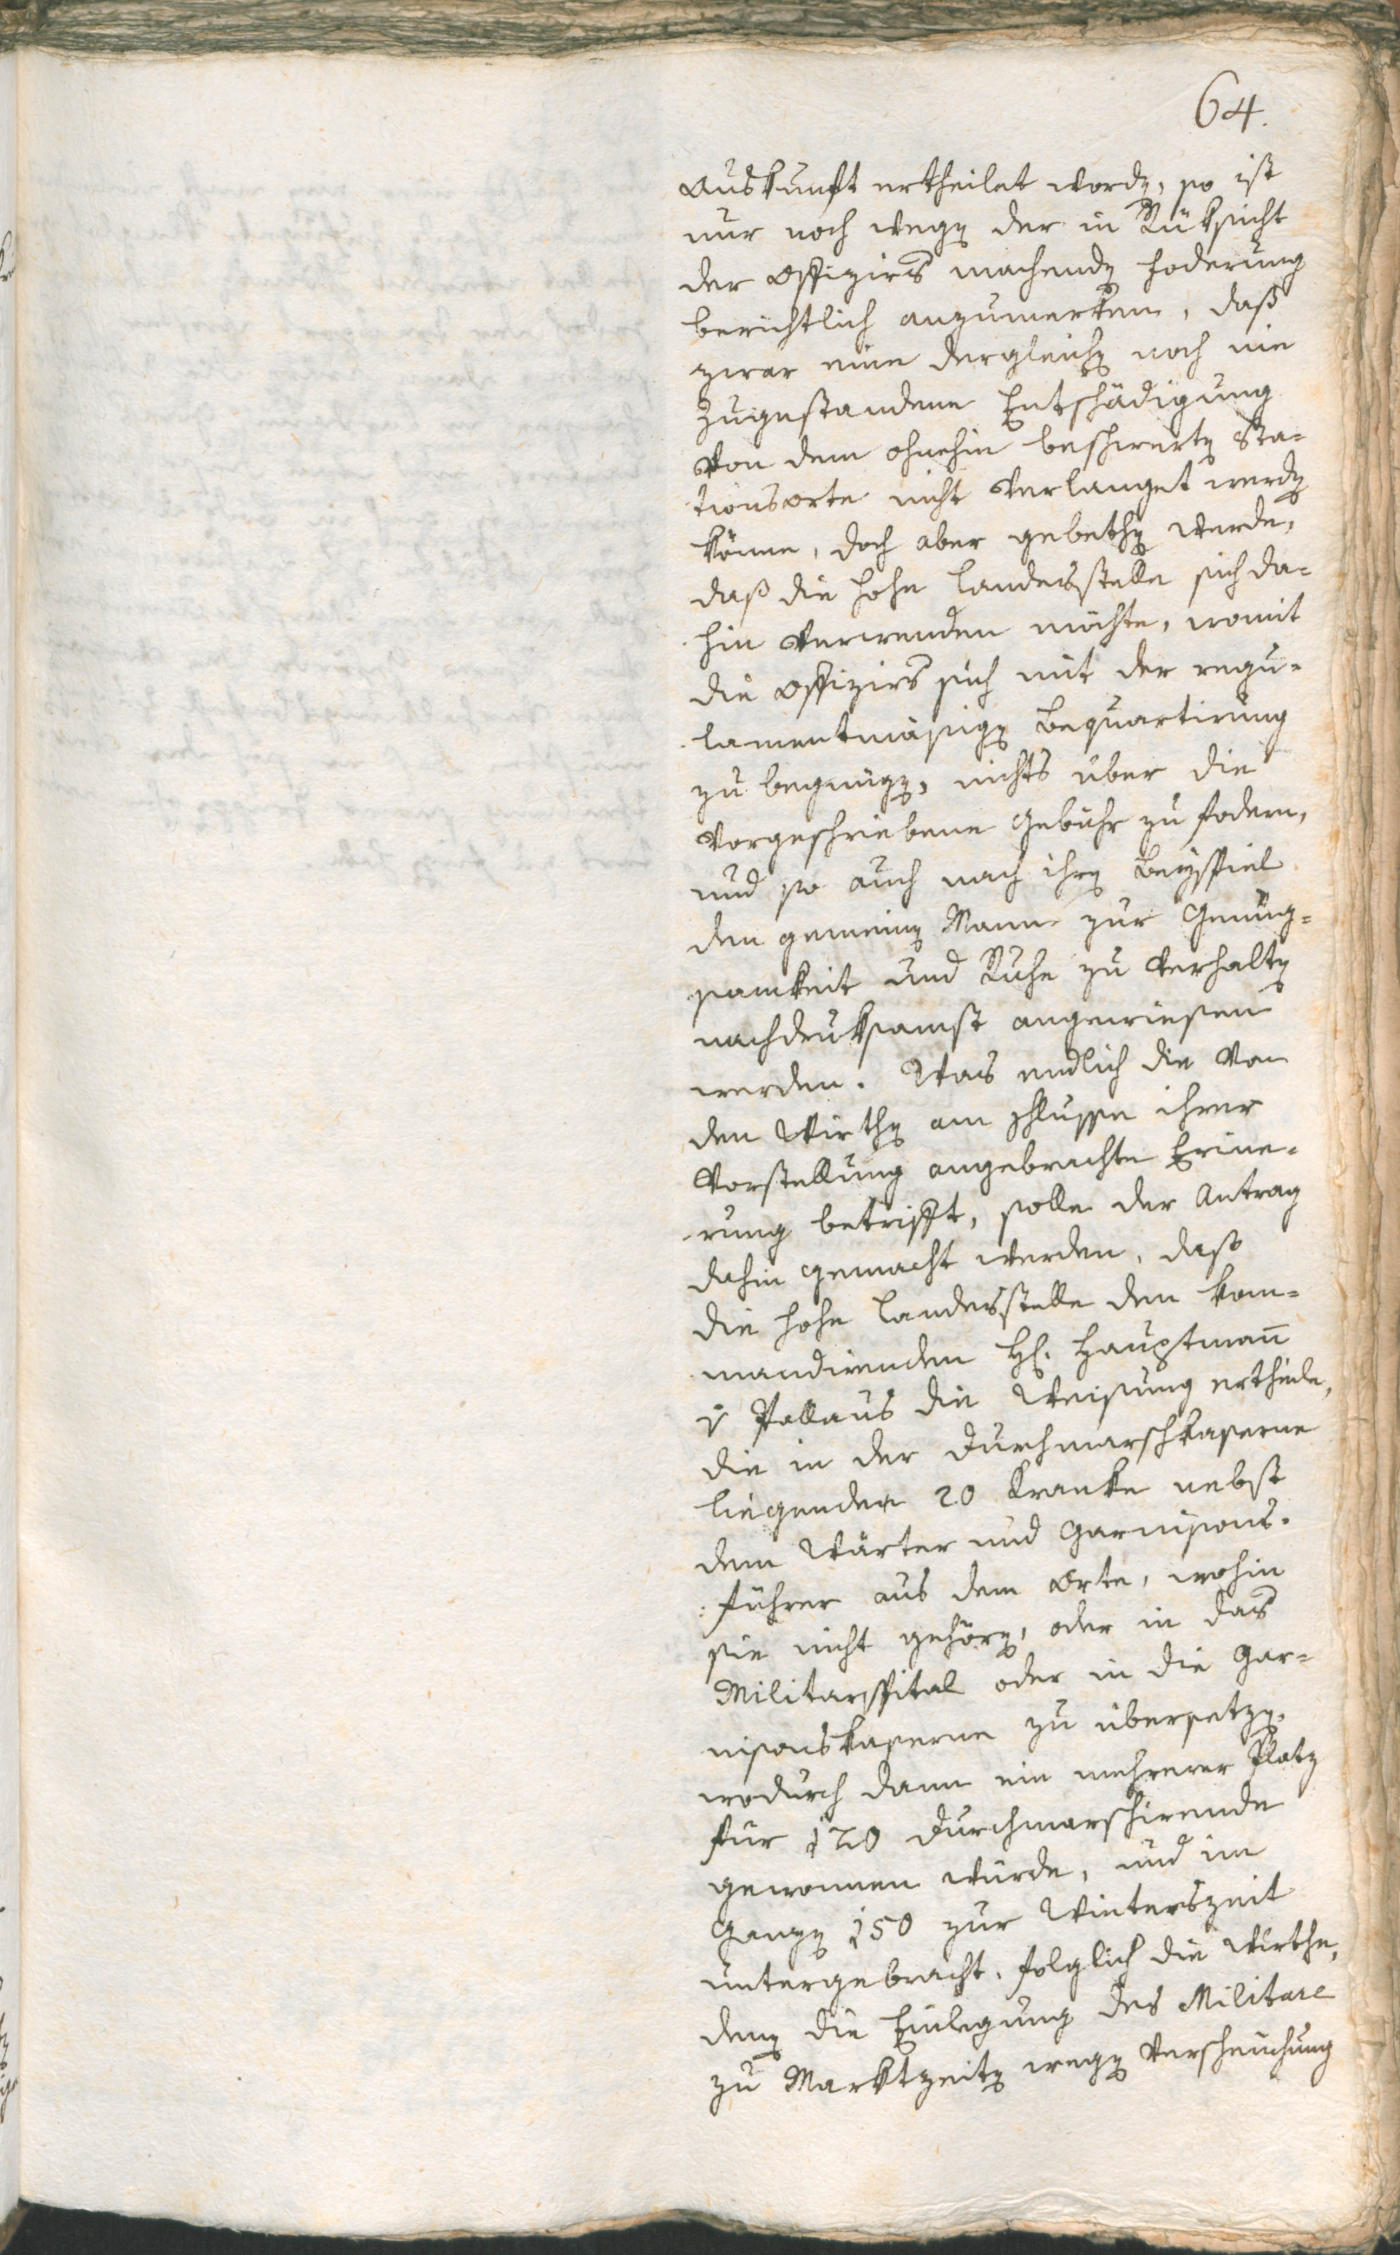 64.
Auskunft ertheilet word, so ist
nur noch weg der in Rüksicht
der Offizirs machend Foderung
berichtlich anzumerken, daß
zwar eine dergleich noch nie
zugestandene Entschädigung
von dem ohnehin beschwert Sta-
tionsorte nicht verlanget werd
könne, doch aber gebeth werde,
daß die hohe Landesstelle sich da-
hin verwenden möchte, womit
die Offizirs sich mit der regu-
lamentmäsig Bequartirung
zu begnüg, nichts über die
vorgeschriebene Gebühr zu fodern,
und so auch nach ihr Beyspiel
den gemein Mann zur Genüg-
samkeit und Ruhe zu verhalt
nachdruksamst angewiesen
werden. Was endlich die von
den Wirth am Schlusse ihrer
Vorstellung angebrachte Erine-
rung betrifft, solle der Antrag
dahin gemacht werden, daß
die hohe Landesstelle den kom-
mandirenden H. Hauptmañ
v Pallaus die Weisung ertheile,
die in der Durchmarschkaserne
liegenden 20 Kranke nebst
dem Wärter und Garnisons-
führer aus dem Orte, wohin
sie nicht gehör, oder in das
Militarspital oder in die Gar-
nisonskaserne zu übersetz,
wodurch dann ein mehrerer Platz
für 120 Durchmarschirende
gewonnen würde, und im
Ganz 150 zur Winterszeit
untergebracht, folglich die Wirthe,
den die Einlegung des Militare
zu Marktzeit weg Verscheuchung